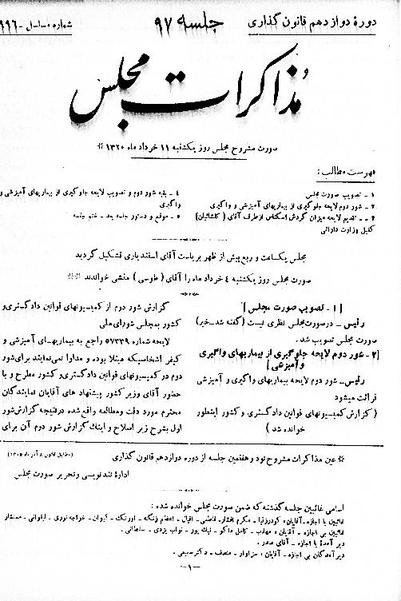 دورهٔ دوازدهم قانون گذاری
جلسه ۹۷
شماره مسلسل
مذاکرات مجلس
صورت مشروح مجلس روز یکشنبه ۱۱ خرداد ماه ۱۳۲۰
فهرست مطالب:
۱ - تصویب صورت مجلس
۲ - شور دوم لایحه جلوگیری از بیماریهای آمیزشی و واگیری
۳ - تقدیم لایحه میزان گردش اسکناس از طرف آقای (کاشانیان)
کفیل وزارت دارائی
۴ - بقیه شور دوم و تصویب لایحه جلوگیری از بیماریهای آمیزشی و
واگیری
۵ - موقع و دستور جلسه بعد - ختم جلسه
مجلس یکساعت و ربع پیش از ظهر بریاست آقای اسفندیاری تشکیل گردید
صورت مجلس روز یکشنبه ۴ خرداد ماه را آقای (طوسی) منشی خواندند
[۱ - تصویب صورت مجلس]
رئیس - در صورت مجلس نظری نیست (گفته شد - خیر)
صورت مجلس تصویب شد.
[۲ - شور دوم لایحه جلوگیری از بیماریهای واگیری
و آمیزشی]
رئیس - شور دوم لایحه بیماریهای واگیری و آمیزشی
قرائت میشود
(گزارش کمیسیونهای قوانین دادگستری و کشور اینطور
خوانده شد)
گزارش شور دوم از کمیسیونهای قوانین دادگستری و
کشور به مجلس شورای ملی
لایحه شماره ۵۷۳۳۹ راجع به بیماریهای آمیزشی و
کیفر اشخاصیکه مبتلا بوده و مداوا نمی‌نمایند برای شور
دوم در کمیسیونهای قوانین دادگستری و کشور مطرح و با
حضور آقای وزیر کشور پیشنهاد های آقایان نمایندگان
محترم مورد دقت و مطالعه واقع شده در نتیجه گزارش شور
اول بشرح زیر اصلاح و اینك گزارش شور دوم آن برای
عین مذاکرات مشروح نود و هفتمین جلسه از دوره دوازدهم قانون گذاری
اداره تندنویسی و تحریر صورت مجلس
اسامی غائبین جلسه گذشته که ضمن صورت مجلس خوانده شده:
غائبین با اجازه - آقایان:
غائبین بی اجازه - آقایان:
دیر آمدهٔ با اجازه - آقای صدر.
دیر آمدگان بی اجازه - آقایان:
-۱-